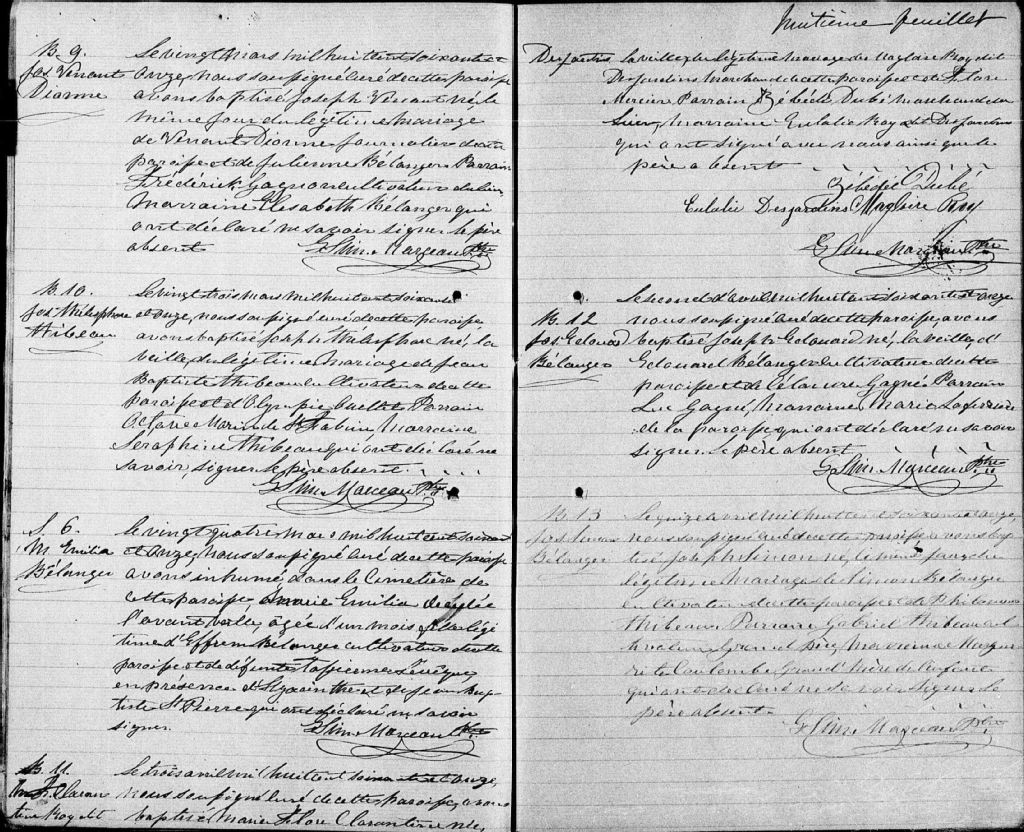 B. 9.
Jos. Venant
Dionne
Le vingt Mars mil huit cent soixante et
onze, nous soussigné curé de cette paroisse
avons baptisé Joseph Venant né le
même jour du légitime mariage
de Venant Dionne journalier de cette
paroisse et de Julienne Bélanger Parrain
Frédérick Gagnon cultivateur du lieu
Marraine Elisabeth Bélanger qui
ont déclaré ne savoir signer le père
absent. Marceau Ptre
B. 10.
Jos. Thélesphore
Thibeau
Le vingt trois mars mil huit cent soixante
et onze, nous soussigné curé de cette paroisse,
avons baptisé Joseph Thélesphore né, la
veille du légitime mariage de Jean
Baptiste Thibeau cultivateur de cette
paroisse et d'Olympie Ouellet Parrain
Octave Morin de St Fabien, Marraine
Séraphine Thibeau qui ont déclaré ne
savoir, signer. Le père absent.
Marceau Ptre
S. 6.
M. Emilia
Bélanger
Le vingt quatre mars mil huit cent soixante
et onze, nous soussigné curé de cette paroisse
avons inhumé, dans le Cemetière de
cette paroisse, Marie Emilia décédée
l'avant veille, agée d'un mois, fille légi
time d'Effrem Bélanger cultivateur de cette
paroisse et de défunte Lévêque,
en présence d'Hyacinthe et de Jean Bap
tiste St Pierre qui ont déclaré ne savoir
signer. Marceau Ptre
B. 11.
Claran
tine Roy dit
Le trois avril mil huit cent soixante et onze,
nous soussigné curé de cette paroisse, avons
baptisé Marie Flore Clarantine née,
huitième feuillet
Desjardins
la veille, du légitime mariage de Magloire Roy dit
Desjardins Marchand de cette paroisse et de Flore
Mercier Parrain Zébédée Dubé Marchand du
lieu, Marraine Eulalie Roy dit Desjardins
qui ont signé avec nous ainsi que le
père absent
Zébédée Dubé
Eulalie Desjardins Magloire Roy
Marceau Ptre
B. 12
Jos. Edouard
Bélanger
Le second d'avril mil huit cent soixante et onze
nous soussigné curé de cette paroisse, avons
baptisé Joseph Edouard né, la veille, d'
Edouard Bélanger cultivateur de cette
paroisse et de Gagné Parrain
Luc Gagné, Marraine, Marie
de la paroisse, qui ont déclaré ne savoir
signer. Le père absent.
Marceau Ptre
B. 13
Jos. Simon
Bélanger
Le quinze avril mil huit cent soixante et onze,
nous soussigné curé de cette paroisse avons bap
tisé Joseph Simon né, le même jour, du
légitime mariage de Simon Bélanger
cultivateur de cette paroisse et de
Thibeau, Parrain, Gabriel Thibeau cul
tivateur Grand père Marraine
Coulombe Grand'mère de l'enfant
qui ont déclaré ne savoir signer. Le
père absent
Marceau Ptre